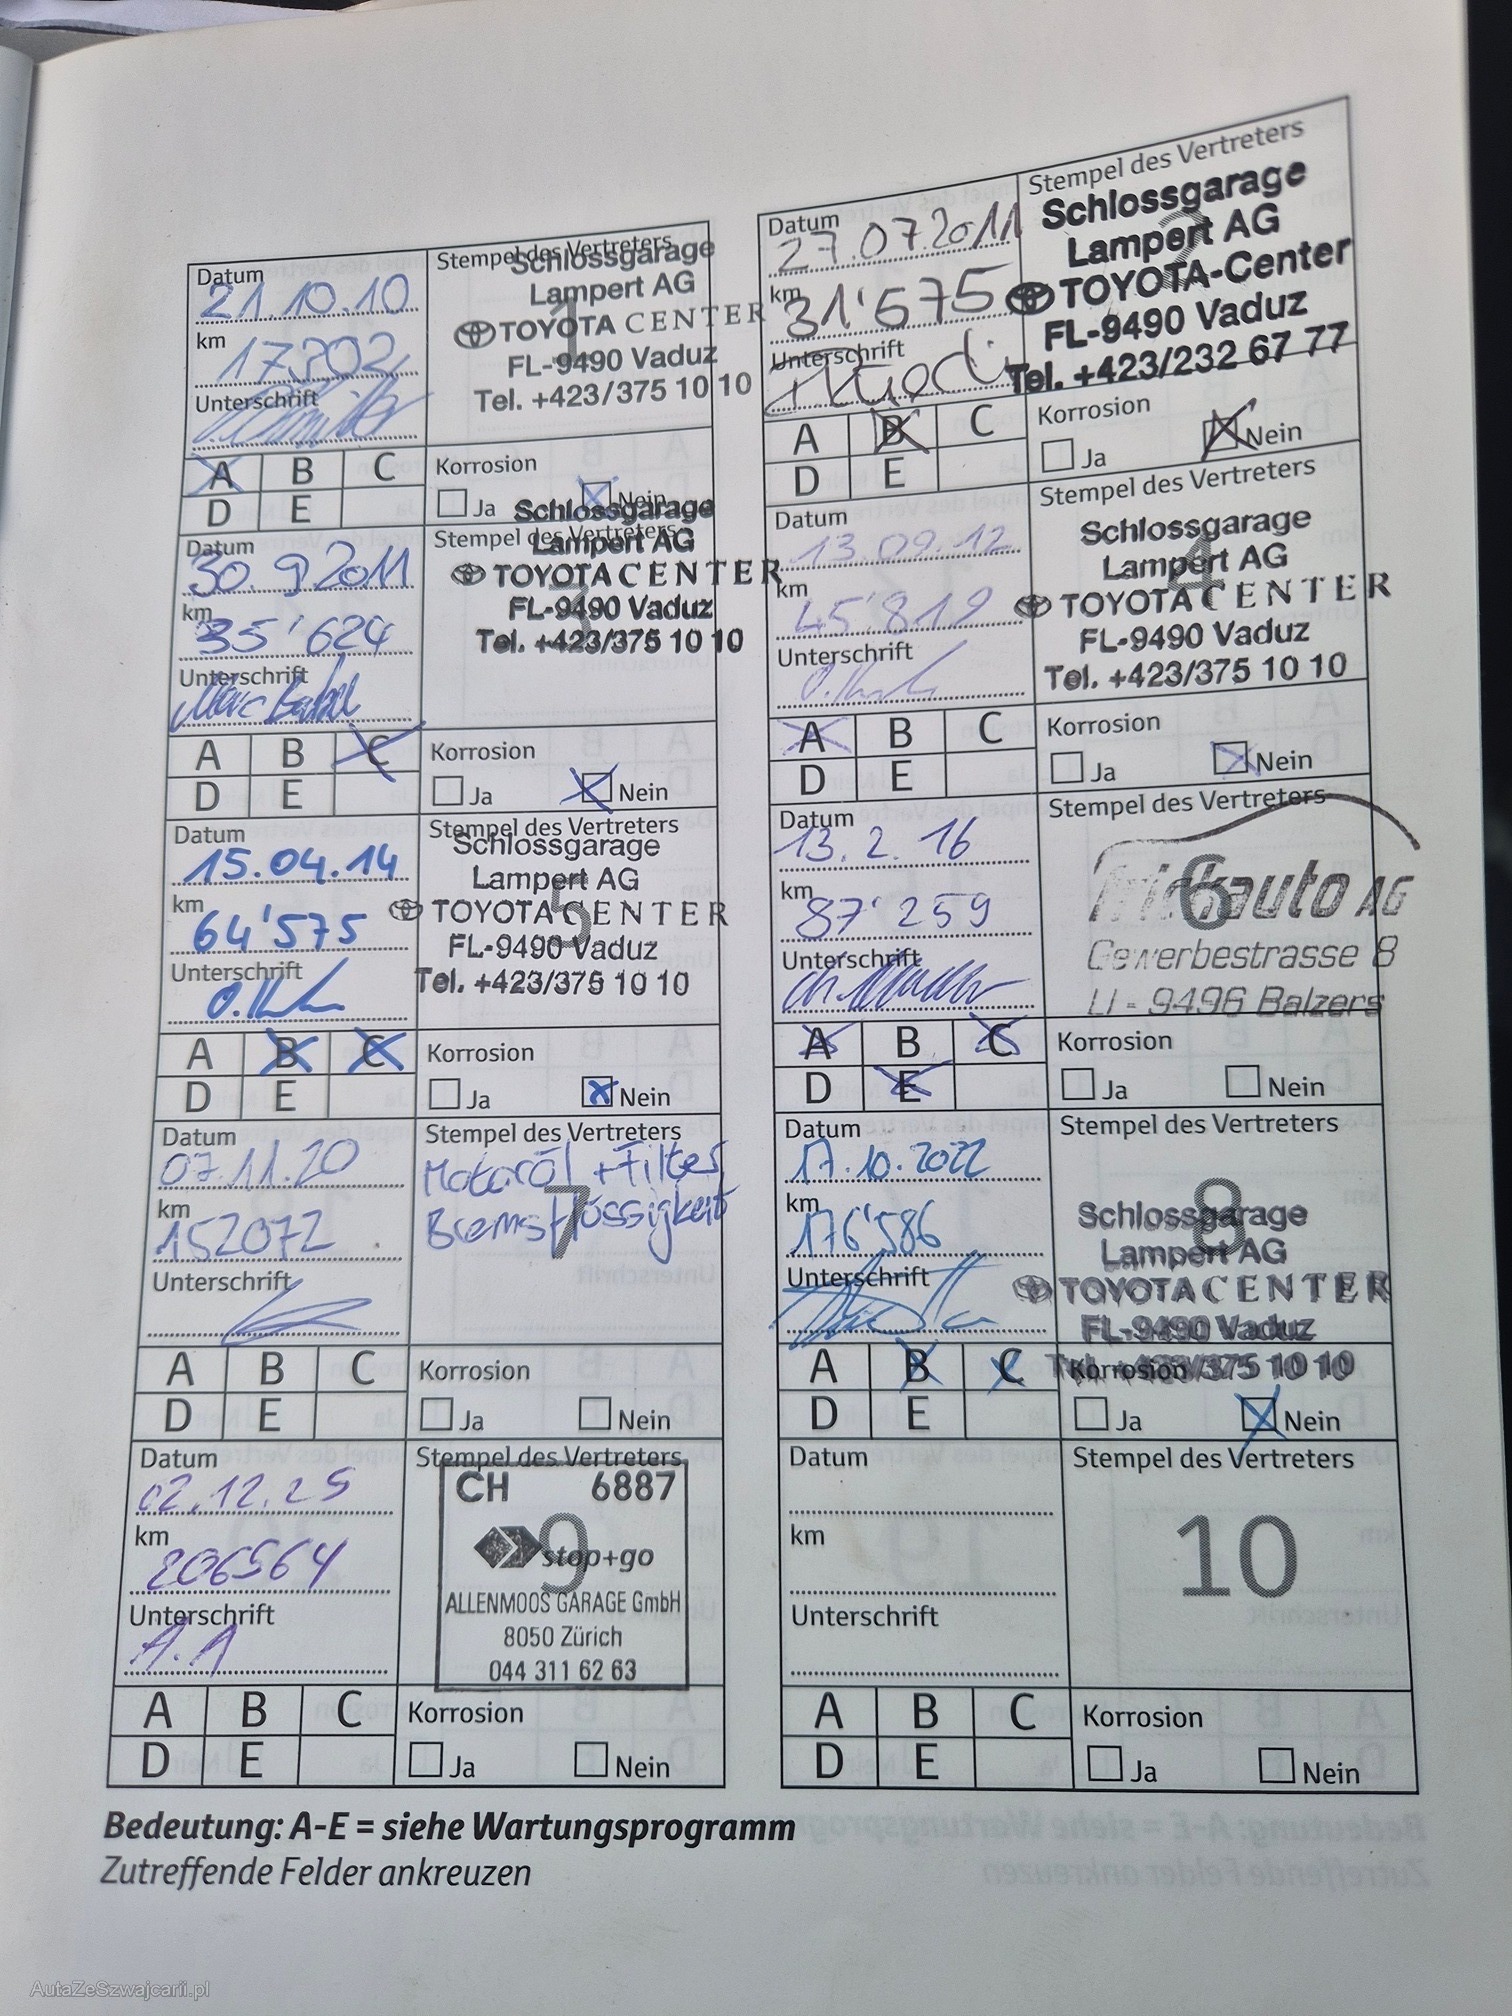 Datum
21.10.10
km
17302
Unterschrift
Stempel des Vertreters
1
Schlossgarage
Lampert AG
TOYOTA CENTER
FL-9490 Vaduz
Tel. +423/375 10 10
A B C
D E
Korrosion
Ja Nein
Datum
27.07.2011
km
31'675
Unterschrift
Stempel des Vertreters
2
Schlossgarage
Lampert AG
TOYOTA-Center
FL-9490 Vaduz
Tel. +423/232 67 77
A B C
D E
Korrosion
Ja Nein
Datum
30.9.2011
km
35'624
Unterschrift
Stempel des Vertreters
3
Schlossgarage
Lampert AG
TOYOTA CENTER
FL-9490 Vaduz
Tel. +423/375 10 10
A B C
D E
Korrosion
Ja Nein
Datum
13.09.12
km
45'819
Unterschrift
Stempel des Vertreters
4
Schlossgarage
Lampert AG
TOYOTA CENTER
FL-9490 Vaduz
Tel. +423/375 10 10
A B C
D E
Korrosion
Ja Nein
Datum
15.04.14
km
64'575
Unterschrift
Stempel des Vertreters
5
Schlossgarage
Lampert AG
TOYOTA CENTER
FL-9490 Vaduz
Tel. +423/375 10 10
A B C
D E
Korrosion
Ja Nein
Datum
13.2.16
km
87'259
Unterschrift
Stempel des Vertreters
6
frickauto AG
Gewerbestrasse 8
LI - 9496 Balzers
A B C
D E
Korrosion
Ja Nein
Datum
07.11.20
km
152072
Unterschrift
Stempel des Vertreters
7
Motoröl + Filter
Bremsflüssigkeit
A B C
D E
Korrosion
Ja Nein
Datum
17.10.2022
km
176'586
Unterschrift
Stempel des Vertreters
8
Schlossgarage
Lampert AG
TOYOTA CENTER
FL-9490 Vaduz
Tel. +423/375 10 10
A B C
D E
Korrosion
Ja Nein
Datum
02.12.25
km
206564
Unterschrift
A.A
Stempel des Vertreters
9
CH 6887
stop+go
ALLENMOOS GARAGE GmbH
8050 Zürich
044 311 62 63
A B C
D E
Korrosion
Ja Nein
Datum
km
Unterschrift
Stempel des Vertreters
10
A B C
D E
Korrosion
Ja Nein
Bedeutung: A-E = siehe Wartungsprogramm
Zutreffende Felder ankreuzen
AutaZeSzwajcarii.pl